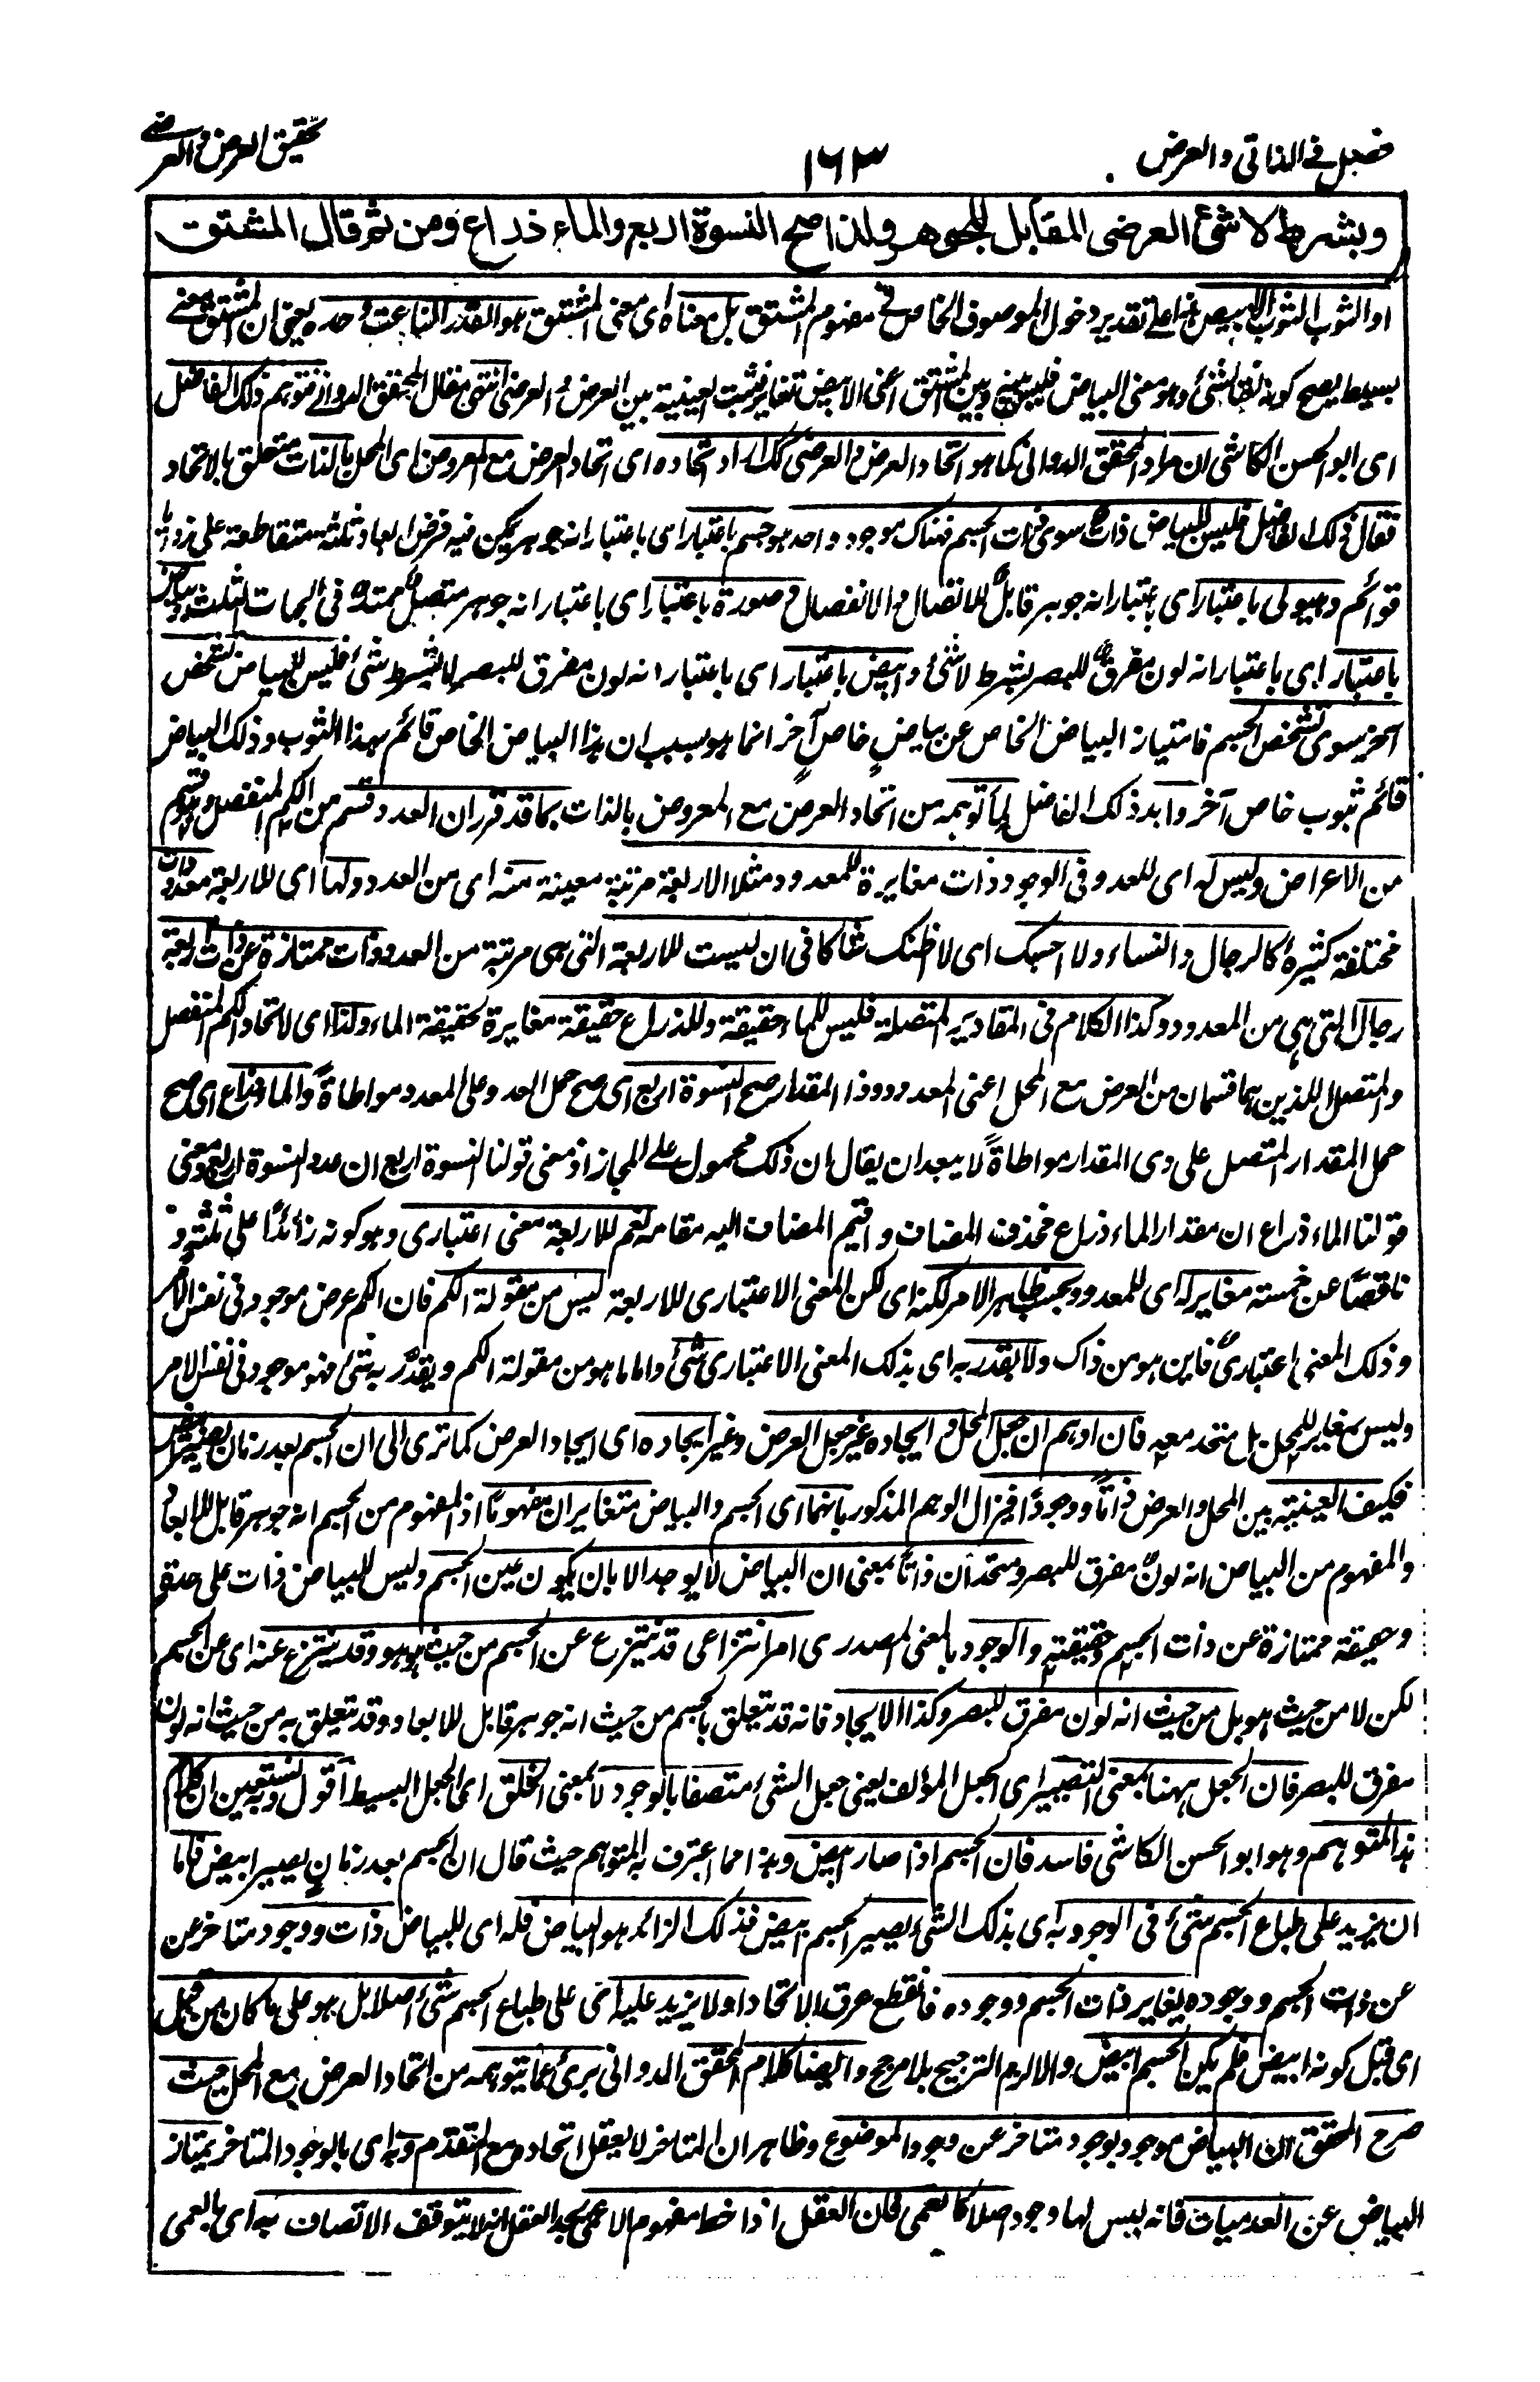 فصل في الذاتي والعرض
١٦٣
تحقيق العرض والعرضي
وبشرط لا شئ العرضى المقابل للجوهر ولذا صح النسوة اربع والماء ذراع ومن ثم قال المشتق
او الثوب الثوب الابيض بناء على تقدير دخول الموصوف الخاص في مفهوم المشتق بل معناه اى معنى المشتق هو القدر الناعت وحده يعنى ان المشتق معنى
بسيط يصح كونه نعتا لشئ وهو معنى البياض فليس بينه وبين المشتق اعنى الابيض تغاير فثبت العينية بين العرض والعرضى انتهى مقال المحقق الدوانى فتوهم ذلك الفاضل
اى ابو الحسن الكاشى ان مراد المحقق الدوانى كما هو اتحاد العرض والعرضى كك اراد اتحاده اى اتحاد العرض مع المعروض اى المحل بالذات متعلق بالاتحاد
فقال ذلك الفاضل فليس للبياض ذات سوى ذات الجسم فهناك موجود واحد هو جسم باعتبار اى باعتبار انه جوهر يمكن فيه فرض ابعاد ثلثة متقاطعة على زوايا
قوائم وهيولى باعتبار اى باعتبار انه جوهر قابل للاتصال والانفصال وصورة باعتبار اى باعتبار انه جوهر متصل ممتد فى الجهات الثلث وبياض
باعتبار اى باعتبار انه لون مفرق للبصر بشرط لا شئ وابيض باعتبار اى باعتبار انه لون مفرق للبصر لا بشرط شئ فليس للبياض تشخص
آخر سوى تشخص الجسم فامتياز البياض الخاص عن بياض خاص آخر انما هو بسبب ان هذا البياض الخاص قائم بهذا الثوب وذلك البياض
قائم بثوب خاص آخر وايد ذلك الفاضل لما توهمه من اتحاد العرض مع المعروض بالذات بما قد قرر ان العدد قسم من الكم المنفصل وهو قسم
من الاعراض وليس له اى للعدد فى الوجود ذات مغايرة للمعدود مثلا الاربعة مرتبة معينة منه اى من العدد ولها اى للاربعة معدودات
مختلفة كثيرة كالرجال والنساء ولا احسبك اى لا اظنك شاكا فى ان ليست للاربعة التى هى مرتبة من العدد ذات ممتازة عن ذات اربعة
رجال التى هى من المعدود وكذا الكلام فى المقادير المتصلة فليس للماء حقيقة وللذراع حقيقة مغايرة لحقيقة الماء ولذا اى لاتحاد الكم المنفصل
والمتصل اللذين هما قسمان من العرض مع المحل اعنى المعدود وذا المقدار صح النسوة اربع اى صح حمل العدد على المعدود مواطاة والماء ذراع اى صح
حمل المقدار المتصل على ذى المقدار مواطاة لا يبعد ان يقال ان ذلك محمول على المجاز اذ معنى قولنا النسوة اربع ان عدد النسوة اربع ومعنى
قولنا الماء ذراع ان مقدار الماء ذراع فحذف المضاف واقيم المضاف اليه مقامه نعم للاربعة معنى اعتبارى وهو كونه زائدا على ثلثة و
ناقصا عن خمسة مغاير له اى للمعدود بحسب ظاهر الامر لكنه اى لكن المعنى الاعتبارى للاربعة ليس من مقولة الكم فان الكم عرض موجود فى نفس الامر
وذلك المعنى اعتبارى فاين هو من ذاك ولا يقدر به اى بذلك المعنى الاعتبارى شئ واما ما هو من مقولة الكم ويقدر به شئ فهو موجود فى نفس الامر
وليس بمغاير للمحل بل متحد معه فان اوهم ان جعل المحل وايجاده غير جعل العرض وغير ايجاده اى ايجاد العرض كما ترى الى ان الجسم بعد زمان يصير ابيض
فكيف العينية بين المحل والعرض ذاتا ووجودا فيزال الوهم المذكور بانهما اى الجسم والبياض متغايران مفهوما اذ المفهوم من الجسم انه جوهر قابل للابعاد
والمفهوم من البياض انه لون مفرق للبصر ومتحدان ذاتا بمعنى ان البياض لا يوجد الا بان يكون عين الجسم وليس للبياض ذات على حدة
وحقيقة ممتازة عن ذات الجسم وحقيقته والوجود بالمعنى المصدرى امر انتزاعى قد ينتزع عن الجسم من حيث هو هو وقد ينتزع عنه اى عن الجسم
لكن لا من حيث هو بل من حيث انه لون مفرق للبصر وكذا الايجاد فانه قد يتعلق بالجسم من حيث انه جوهر قابل للابعاد وقد يتعلق به من حيث انه لون
مفرق للبصر فان الجعل ههنا بمعنى التصيير اى الجعل المؤلف يعنى جعل الشئ متصفا بالوجود لا بمعنى الخلق اى الجعل البسيط اقول وبه نستعين ان كلام
هذا المتوهم وهو ابو الحسن الكاشى فاسد فان الجسم اذا صار ابيض وهذا مما اعترف به المتوهم حيث قال ان الجسم بعد زمان يصير ابيض فاما
ان يزيد على طباع الجسم شئ فى الوجود به اى بذلك الشئ يصير الجسم ابيض فذلك الزائد هو البياض فله اى للبياض ذات ووجود متاخر عن
عن ذات الجسم ووجوده يغاير ذات الجسم ووجوده فانقطع عرق الاتحاد او لا يزيد عليه اى على طباع الجسم شئ اصلا بل هو على ما كان من قبل
اى قبل كونه ابيض فلم يكن الجسم ابيض والا لزم الترجيح بلا مرجح وايضا كلام المحقق الدوانى برئ عما يتوهمه من اتحاد العرض مع المحل حيث
صرح المحقق ان البياض موجود بوجود متاخر عن وجود الموضوع وظاهر ان المتاخر لا يعقل اتحاده مع المتقدم وبه اى بالوجود المتاخر يمتاز
البياض عن العدميات فانه ليس لها وجود اصلا كالعمى فان العقل اذا لاحظ مفهوم الاعمى يجد العقل انه لا يتوقف الاتصاف به اى بالعمى